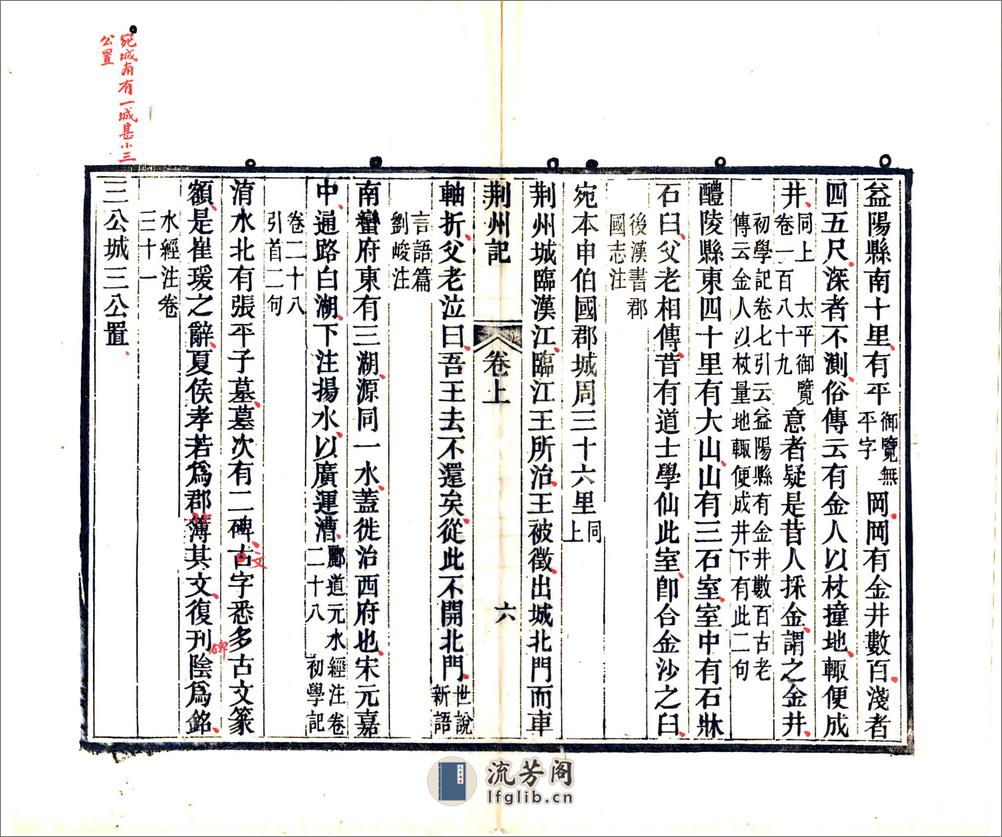 益陽縣南十里有平御覽無平字岡岡有金井數百淺者
四五尺深者不測俗傳云有金人以杖撞地輒便成
井同上 太平御覽卷一百八十九意者疑是昔人採金謂之金井
初學記卷七引云益陽縣有金井數百古老
傳云金人以杖量地輒便成井下有此二句
醴陵縣東四十里有大山山有三石室室中有石牀
石臼父老相傳昔有道士學仙此室卽合金沙之臼
後漢書郡
國志注
宛本申伯國郡城周三十六里同上
荆州城臨漢江臨江王所治王被徵出城北門而車
荆州記 卷上 六
軸折父老泣曰吾王去不還矣從此不開北門世說新語
言語篇
劉峻注
南蠻府東有三湖源同一水蓋徙治西府也宋元嘉
中通路白湖下注揚水以廣運漕酈道元水經注卷二十八 初學記
卷二十八
引首二句
淯水北有張平子墓墓次有二碑古字悉多古文篆
文
額是崔瑗之辭夏侯孝若爲郡薄其文復刊陰爲銘
碑
水經注卷
三十一
三公城三公置
宛城南有一城甚小三
公置
流芳阁
lfglib.cn